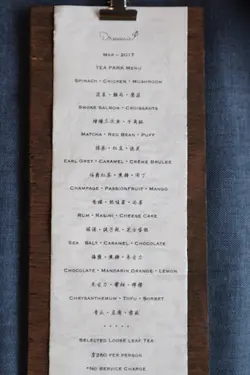 May - 2017
Tea Park Menu
Spinach - Chicken - Mushroom
菠菜、雞肉、蘑菇
Smoke Salmon - Croissants
煙燻三文魚、牛角包
Matcha - Red Bean - Puff
抹茶、紅豆、泡芙
Earl Grey - Caramel - Crème Brûlée
伯爵紅茶、焦糖、布丁
Champage - Passionfruit - Mango
香檳、熱情果、芒果
Rum - Raisin - Cheese Cake
Sea Salt - Caramel - Chocolate
海鹽、焦糖、朱古力
Chocolate - Mandarin Orange - Lemon
朱古力、蜜柑、檸檬
Chrysanthemum - Tofu - Sorbet
Selected Loose Leaf Tea
per person
*No Service Charge